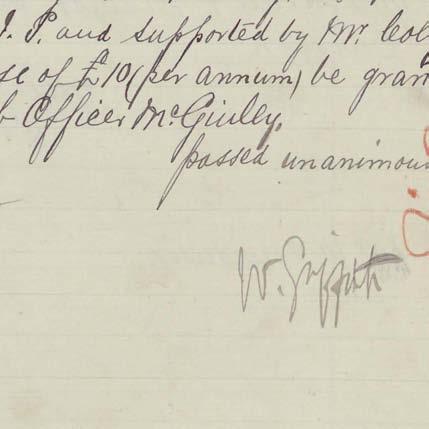 J. P. and supported by Mr. Col
se of £10 (per annum) be gran
b Officer McGinley.
passed unanimou
W. Griffith